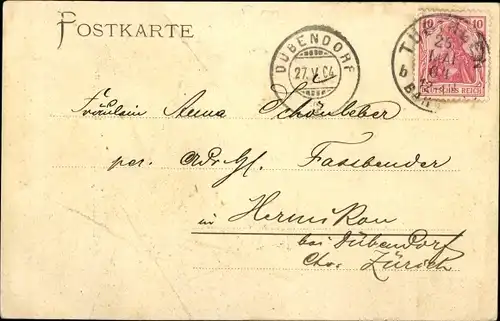 POSTKARTE
DÜBENDORF
27.V.04
10 10
DEUTSCHES REICH
25
MAI
Fräulein Anna Schönleber
per. Adr. Hl. Fassbender
in Hermikon
bei Dübendorf
Ct. Zürich